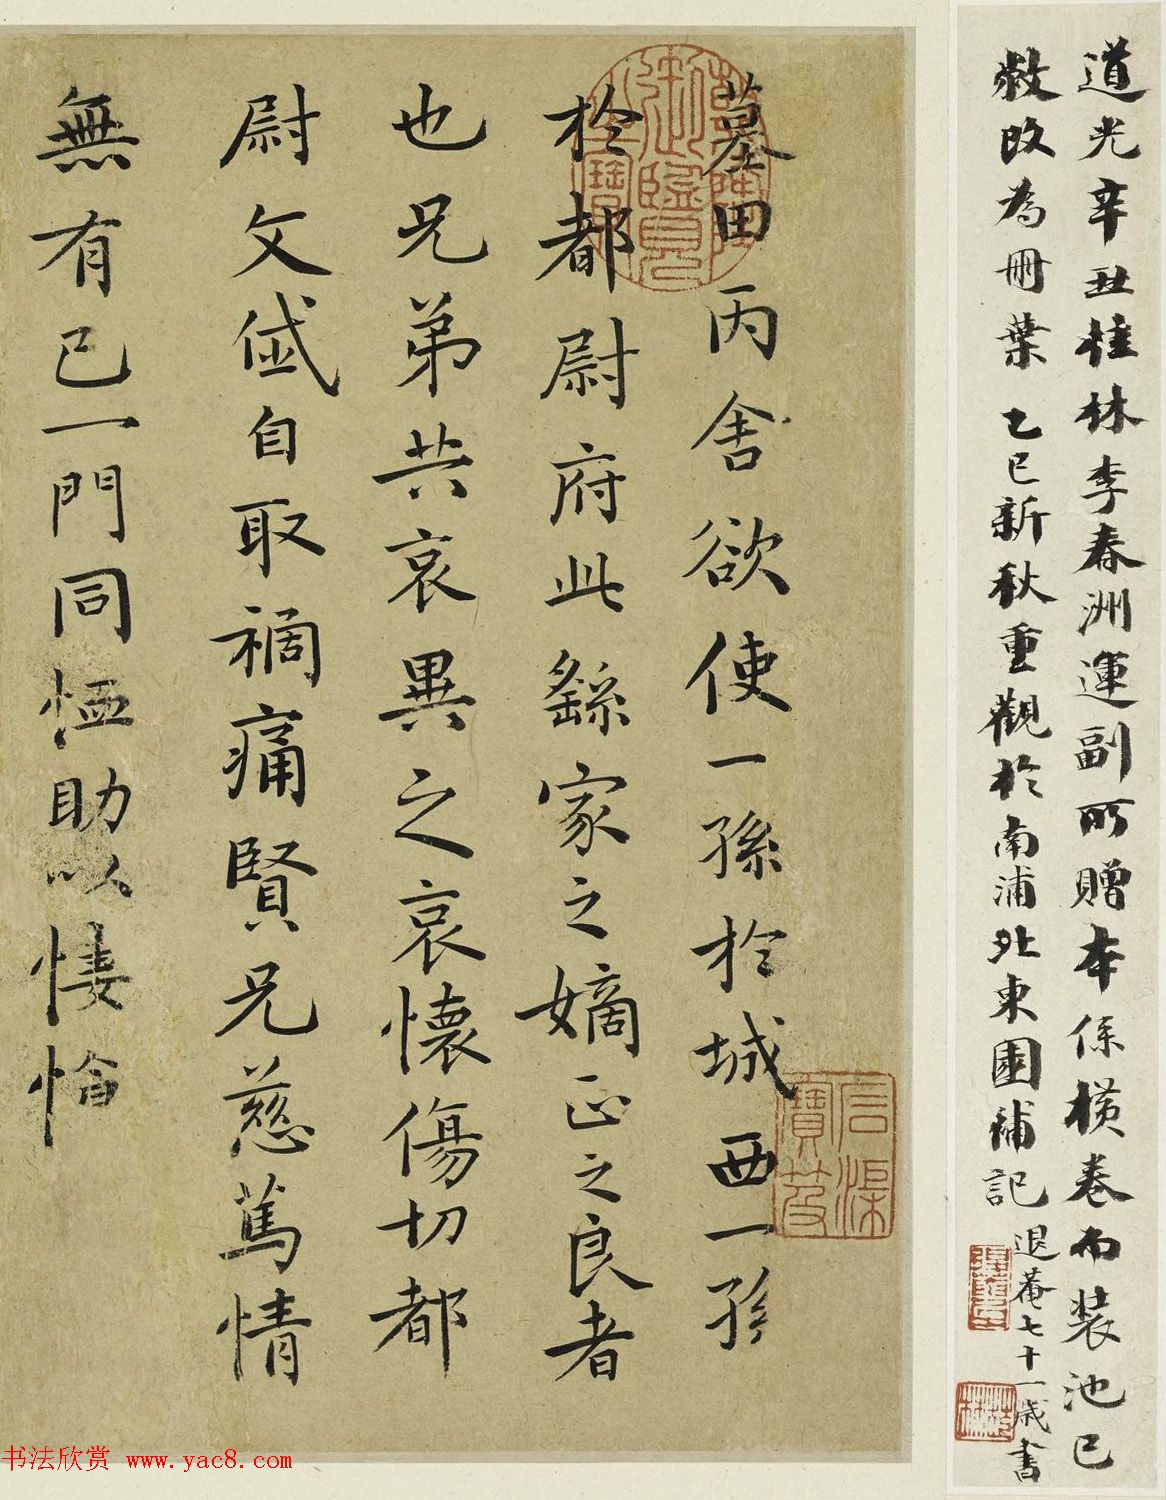 道光辛丑桂林李春洲運副所贈本係橫卷而裝池已
敝改為冊葉 乙巳新秋重觀於南浦北東園補記
退菴七十一歲書
墓田丙舍欲使一孫於城西一孫
於都尉府此繇家之嫡正之良者
也兄弟共哀異之哀懷傷切都
尉文岱自取禍痛賢兄慈篤情
無有已一門同恤助以悽愴
古稀天子
御覽
之寶
書法欣赏 www.yac8.com